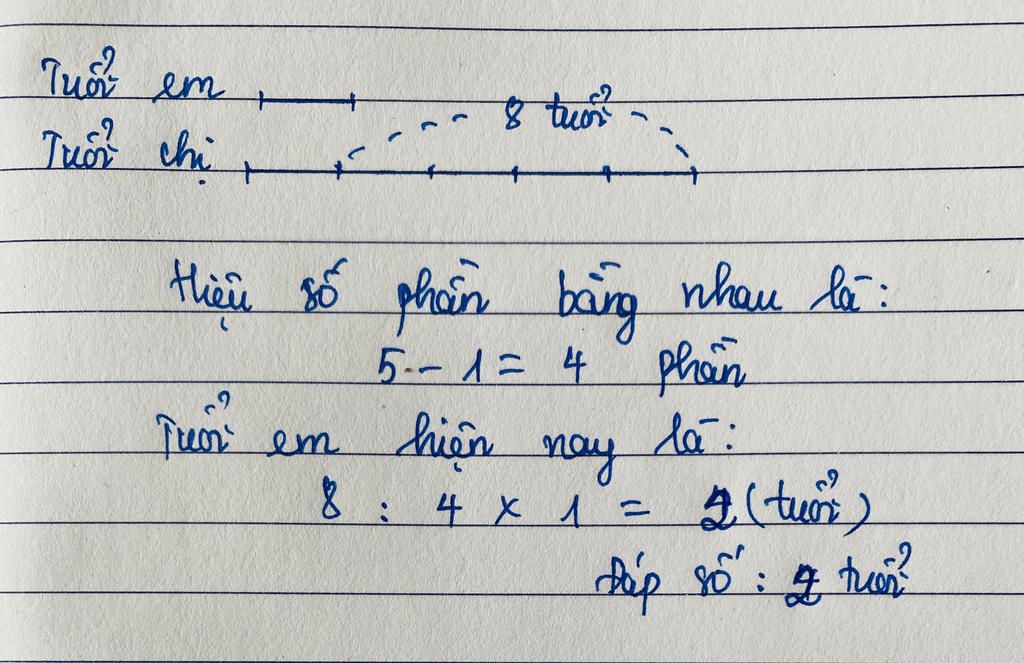 Tuổi em
8 tuổi
Tuổi chị
Hiệu số phần bằng nhau là:
5 - 1 = 4 phần
Tuổi em hiện nay là:
8 : 4 x 1 = 2 (tuổi)
Đáp số: 2 tuổi